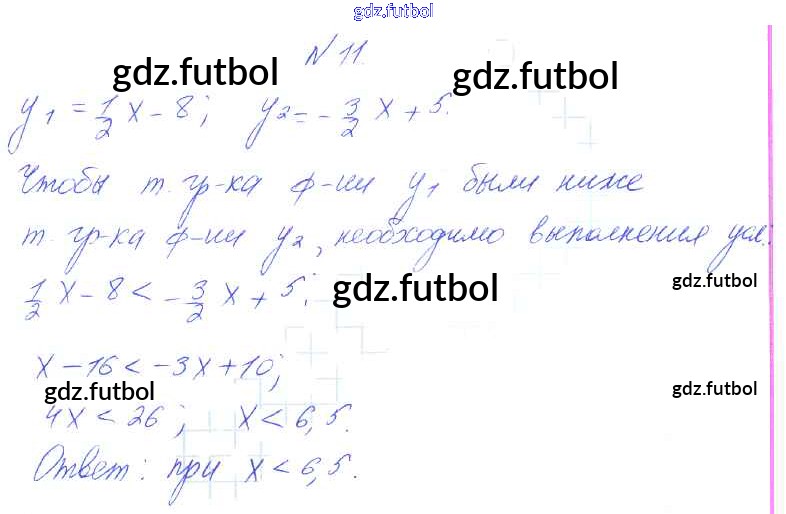 gdz.futbol
N 11.
gdz.futbol gdz.futbol
y1 = 1/2 x - 8; y2 = - 3/2 x + 5.
Чтобы т. гр-ка ф-ии y1 были ниже
т. гр-ка ф-ии y2, необходимо выполнения усл:
gdz.futbol
1/2 x - 8 < - 3/2 x + 5; gdz.futbol
x - 16 < -3x + 10;
gdz.futbol gdz.futbol
4x < 26; x < 6,5.
Ответ: при x < 6,5.